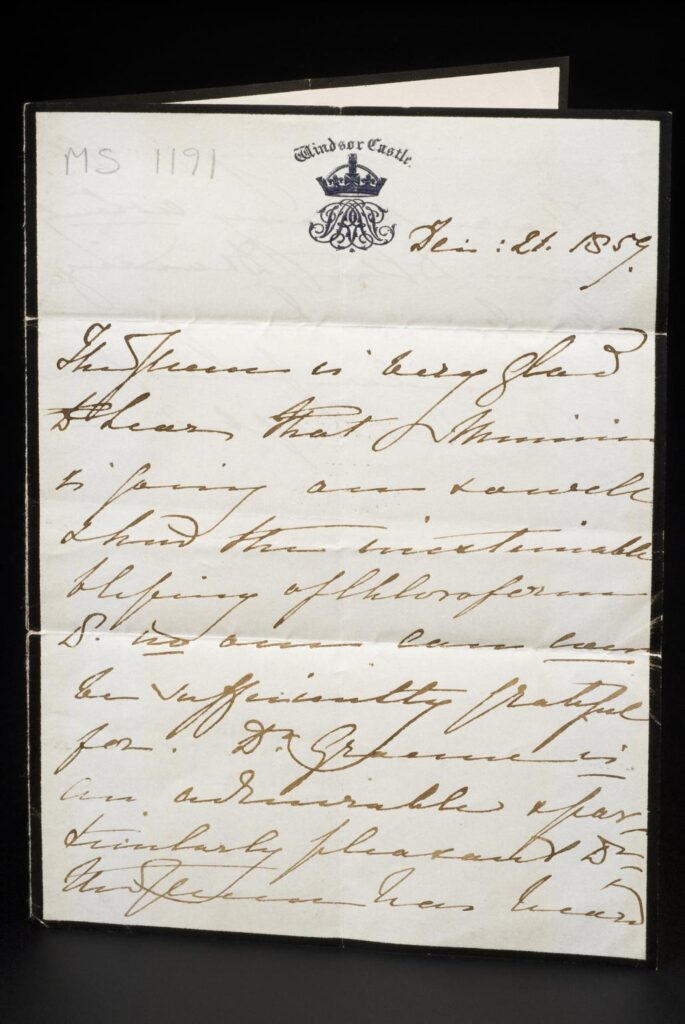 MS 1191
Windsor Castle
21. 1859.
The Queen is very glad
to hear that Minnie
is going on so well
& had the inestimable
blessing of Chloroform
no one can ever
be sufficiently grateful
for. Dr Greene is
an admirable & par-
ticularly pleasant Dr
The Queen has heard